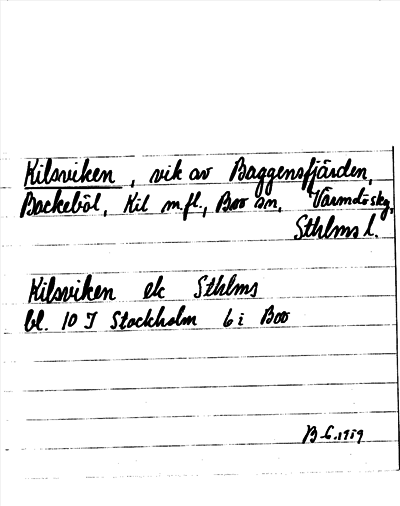 Kilsviken, vik av Baggensfjärden,
Backeböl, Kil m.fl., Boo sn, Värmdö skg,
Sthlms l.
Kilsviken ek Sthlms
bl. 10 I Stockholm 6 i Boo
1959